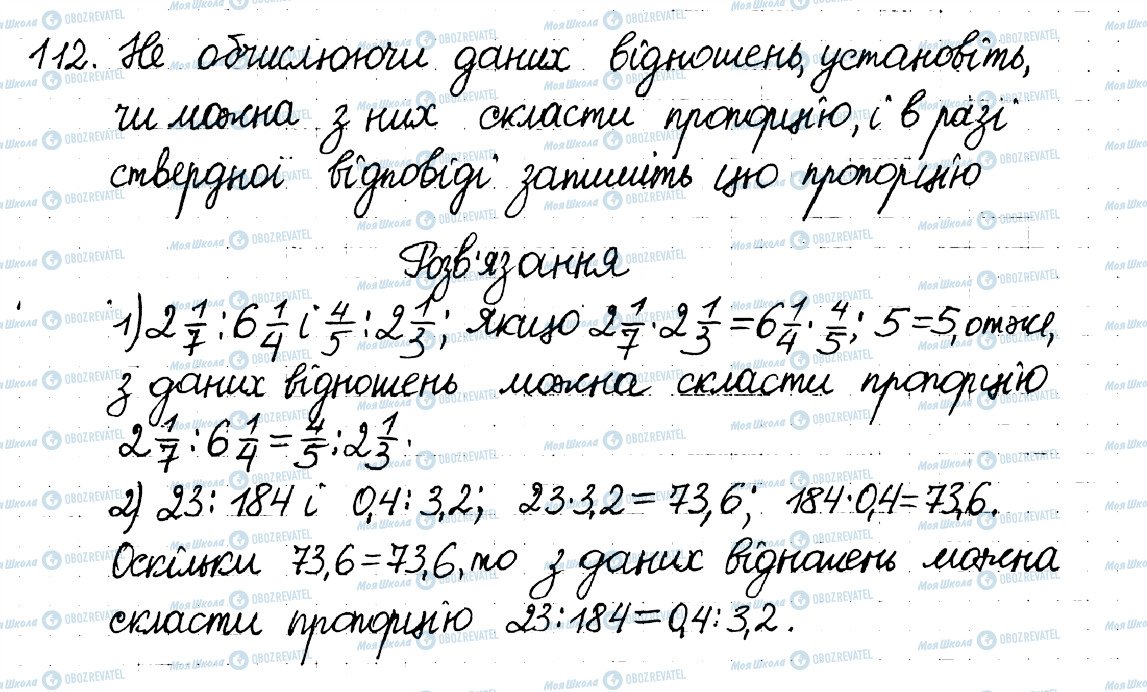 112. Не обчислюючи даних відношень, установіть,
чи можна з них скласти пропорцію, і в разі
ствердної відповіді запишіть цю пропорцію
Розв'язання
1) 2 1/7 : 6 1/4 і 4/5 : 2 1/3; якщо 2 1/7 · 2 1/3 = 6 1/4 · 4/5; 5 = 5, отже,
з даних відношень можна скласти пропорцію
2 1/7 : 6 1/4 = 4/5 : 2 1/3.
2) 23 : 184 і 0,4 : 3,2; 23·3,2 = 73,6; 184·0,4 = 73,6.
Оскільки 73,6 = 73,6, то з даних відношень можна
скласти пропорцію 23 : 184 = 0,4 : 3,2.
МояШкола OBOZREVATEL